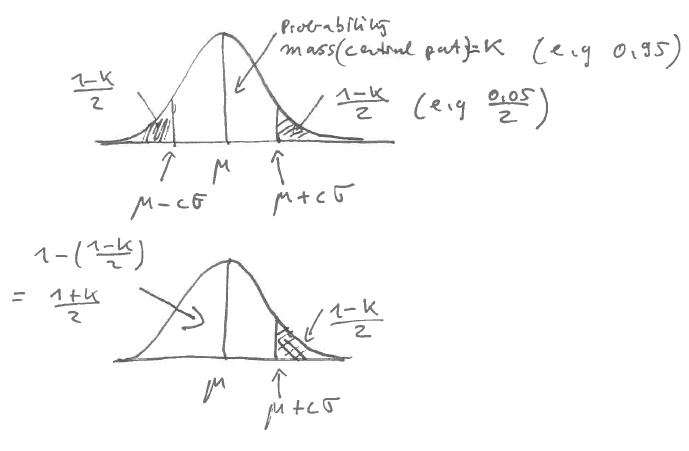 Probability
mass(central part)=K (e.g 0.95)
1-K/2
1-K/2 (e.g 0.05/2)
μ
μ-cσ
μ+cσ
1-(1-K/2)
= 1+K/2
1-K/2
μ
μ+cσ